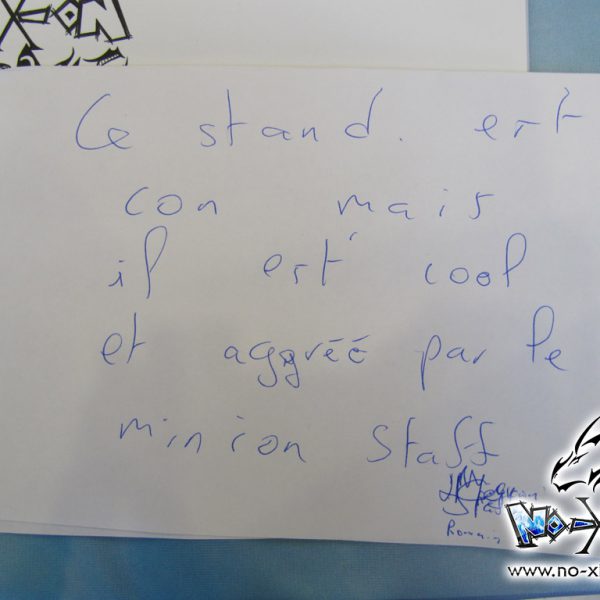 Ce stand. est
con mais
il est cool
et aggréé par le
minion Staff
Romain
www.no-xi